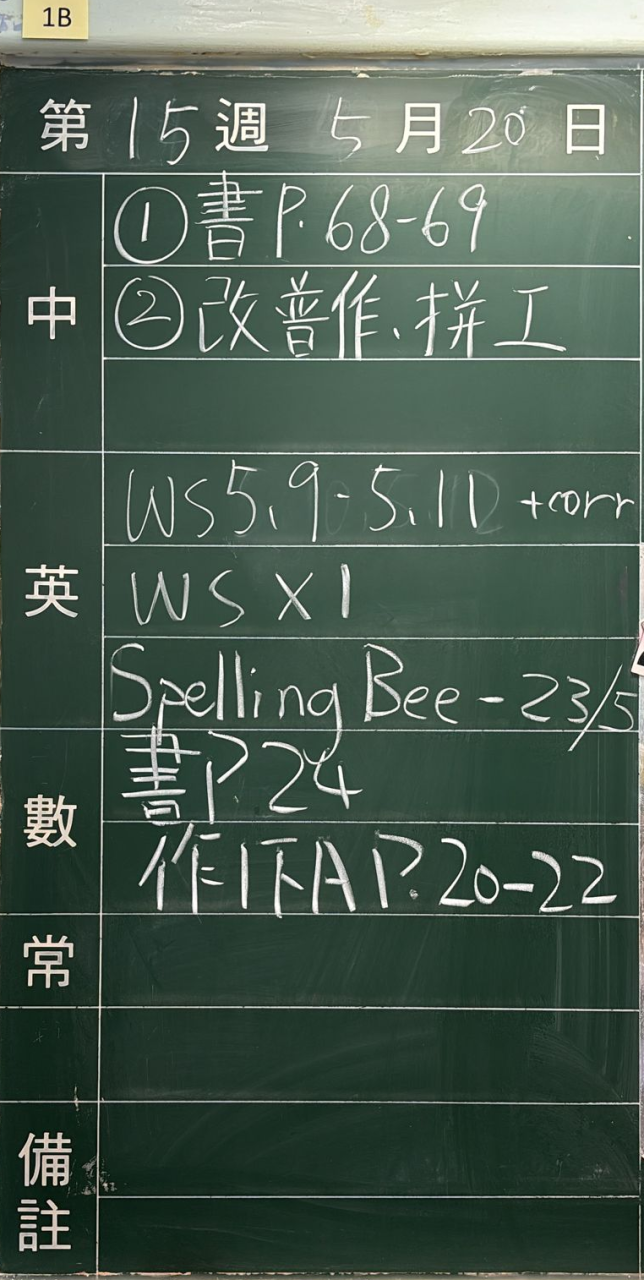 1B
第 15 週 5 月 20 日
中
①書P.68-69
②改普作、拼工
英
WS5.9-5.11 +corr
WS X1
Spelling Bee - 23/5
數
書P.24
作1下A P.20-22
常
備註